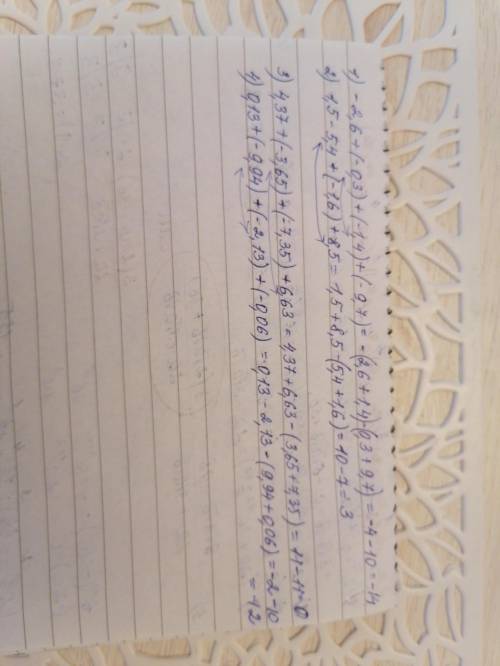 1) -2,6 + (-0,3) + (-1,4) + (-9,7) = -(2,6 + 1,4) - (0,3 + 9,7) = -4 - 10 = -14
2) 1,5 - 5,4 + (-1,6) + 8,5 = 1,5 + 8,5 - (5,4 + 1,6) = 10 - 7 = 3
3) 4,37 + (-3,65) + (-7,35) + 6,63 = 4,37 + 6,63 - (3,65 + 7,35) = 11 - 11 = 0
4) 0,13 + (-9,94) + (-2,13) + (-0,06) = 0,13 - 2,13 - (9,94 + 0,06) = -2 - 10
= -12